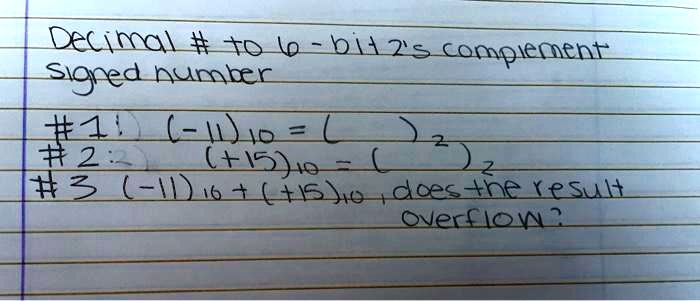 Decimal # to 6-bit 2's complement
signed number
#1: (-11)10 = ( )2
#2: (+15)10 = ( )2
#3 (-11)10 + (+15)10, does the result
overflow?